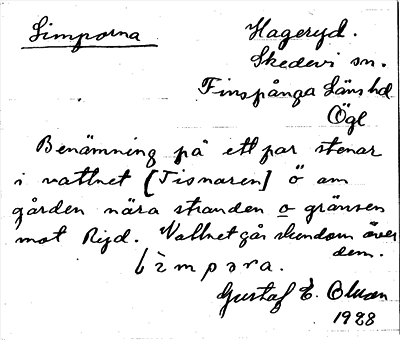 Simporna
Hageryd.
Skedevi sn.
Finspånga Läns hd
Ögl
Benämning på ett par stenar
i vattnet [Tisnaren] ö om
gården nära stranden o gränsen
mot Ryd. Vattnet går stundom över
dem.
Gustaf E. Olson
1928